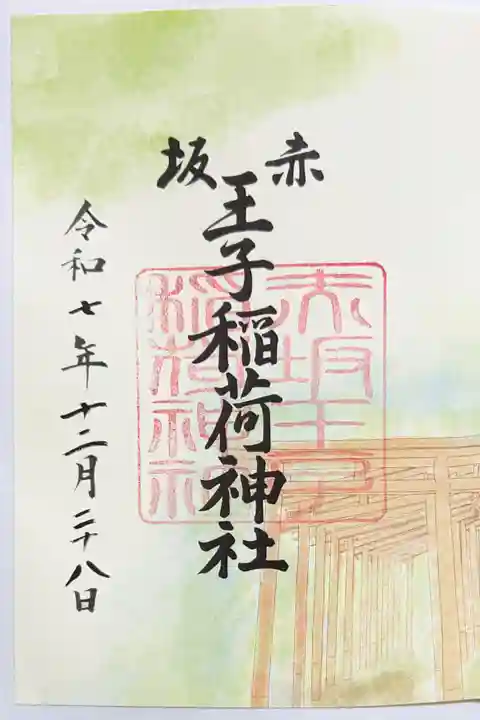 赤坂
王子稲荷神社
赤坂王子
稲荷神社
令和七年十二月二十八日